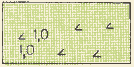 1,0
1,0